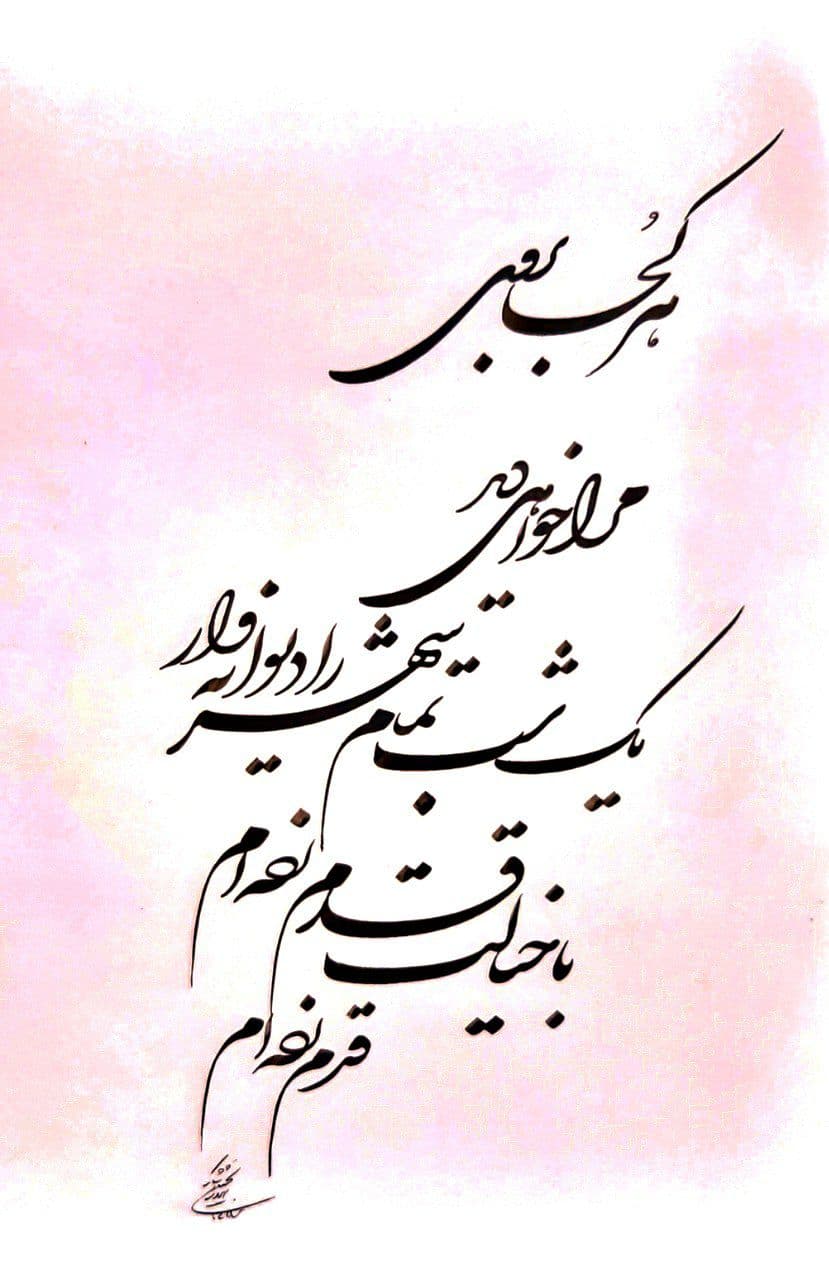 هر کُجا بروی
مرا خواهی دید
یک شب تمام شهر را دیوانه وار
با خیالت قدم زده ام
قدم زده ام